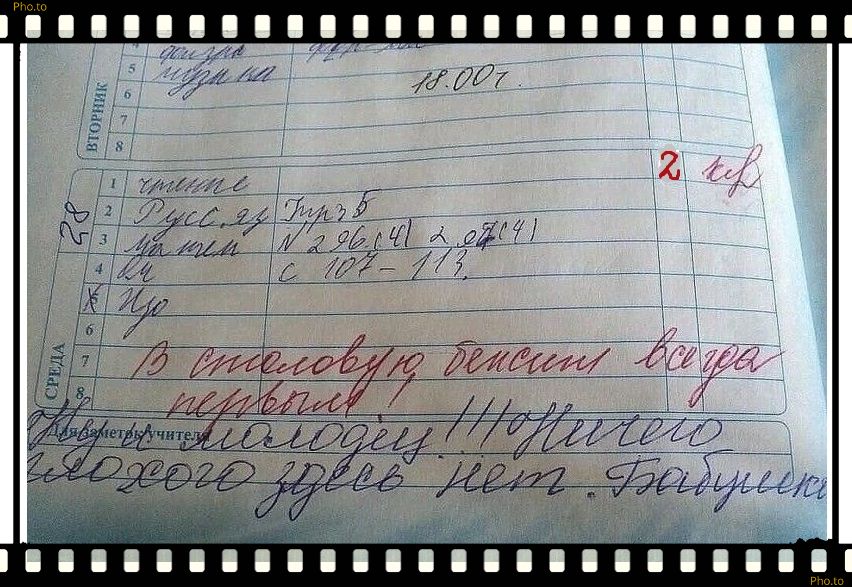 Pho.to
физра
5 музыка
18.00 г.
6
7
8
ВТОРНИК
28
1 чтение 2
2 Русс. яз Упр 5
3 матем N 296.(4) 297(4)
4 Ом с 107-113.
5 Изо
6
7 В столовую бежит всегда
8 первым!
СРЕДА
Для заметок учителя
Ну и молодец!!! Ничего
плохого здесь нет. Бабушка
Pho.to